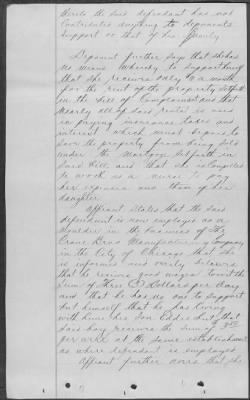 the said defendant has not
contributed anything to deponents
support or that of her family
Deponent further says that she has
no means whereby to support herself
that she receives only a month
for the rent of the property set forth
in the bill of Complaint and that
nearly all of said rental is used
in paying insurance taxes and
interest which must be paid to
save the property from being sold
under the Mortgage set forth in
said bill, and that she is compelled
to work as a nurse to pay
her expenses and them of her
daughter.
Affiant states that the said
defendant is now employed as a
moulder in the business of the
Crane Bros Manufacturing Company
in the City of Chicago that she
is informed and verily believes
that he receives good wages to wit the
sum of Three (3) Dollars per day
and that he has no one to support
but himself that he has living
with him his son Eddie but that
said boy receives the sum of
per week at the same establishment
as where defendant is employed
Affiant further avers that she